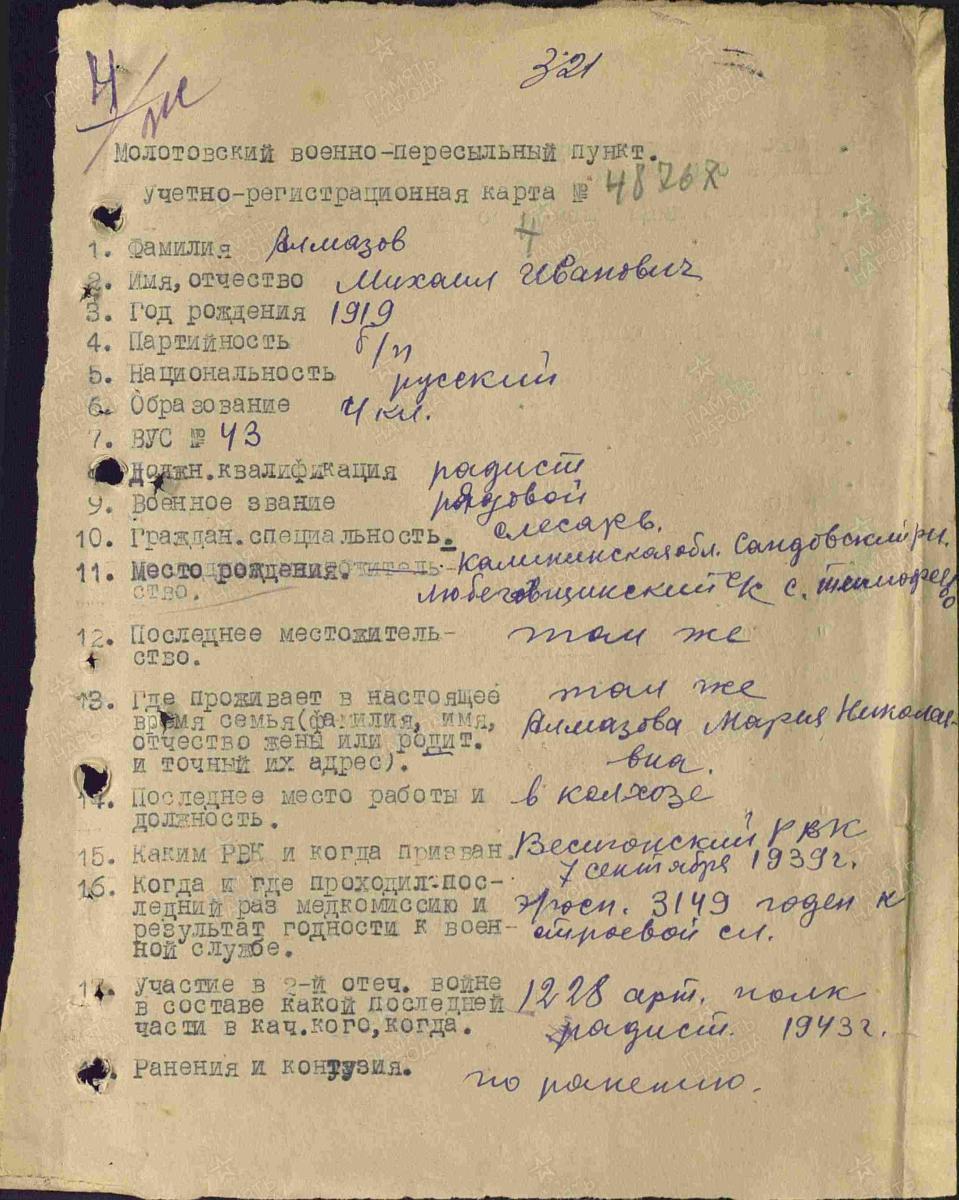 4/
321
Молотовский военно-пересыльный пункт.
учетно-регистрационная карта №
4
1. Фамилия Алмазов
2. Имя, отчество Михаил Иванович
3. Год рождения 1919
4. Партийность б/п
5. Национальность русский
6. Образование 4 кл.
7. ВУС № 43
8. Должн.квалификация радист
9. Военное звание рядовой
10. Граждан.специальность. слесарь.
11. Место рождения. Калининская обл. Сандовский рн.
ство. Любеговщинский с/с с. Тимофеево
12. Последнее местожитель- там же
ство.
13. Где проживает в настоящее там же
время семья(фамилия, имя, Алмазова Мария Николае-
отчество жены или родит. вна.
и точный их адрес).
14. Последнее место работы и в колхозе
должность.
15. Каким РВК и когда призван. Весьгонский РВК
7 сентября 1939 г.
16. Когда и где проходил пос-
ледний раз медкомиссию и Госп. 3149 годен к
результат годности к воен- строевой сл.
ной службе.
17. Участие в 2-й отеч. войне 1228 арт. полк
в составе какой последней
части в кач.кого,когда. радист. 1943 г.
18. Ранения и контузия. по ранению.